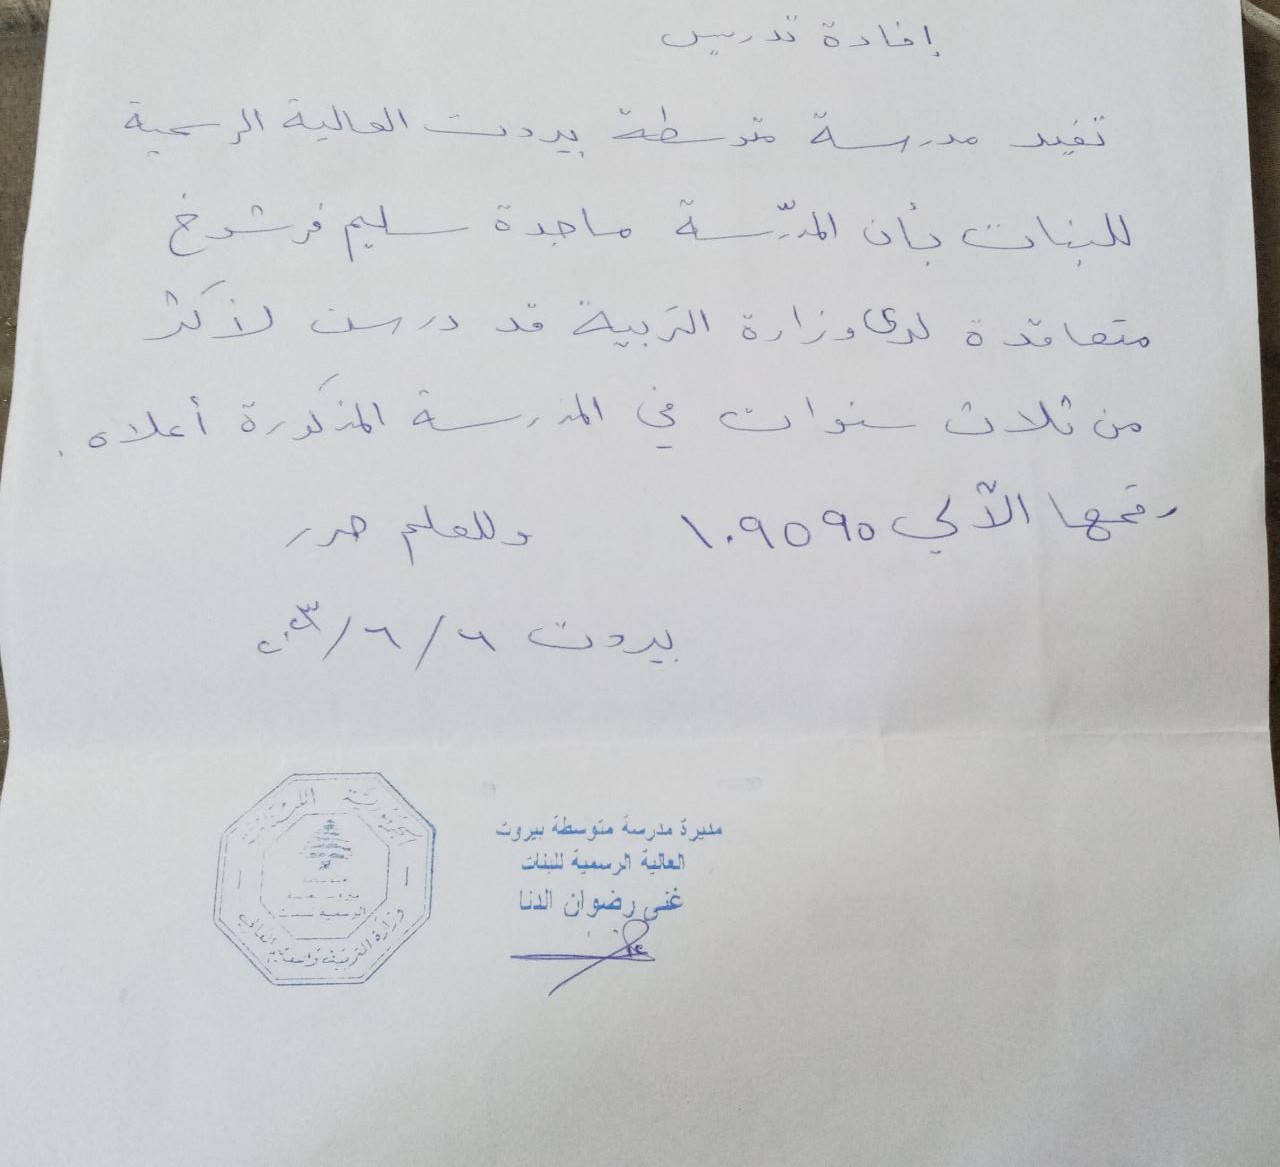 إفادة تدريس
تفيد مدرسة متوسطة بيروت العالية الرسمية
للبنات بأن المدرّسة ماجدة سليم فرشوخ
متعاقدة لدى وزارة التربية قد درست لأكثر
من ثلاث سنوات في المدرسة المذكورة أعلاه.
رقمها الآلي ١٠٩٥٩٥ وللعلم حرر
بيروت ٦/٦/٢٠٢٣
مديرة مدرسة متوسطة بيروت
العالية الرسمية للبنات
غنى رضوان الدنا
الجمهورية اللبنانية
الرسمية للبنات
وزارة التربية والتعليم العالي